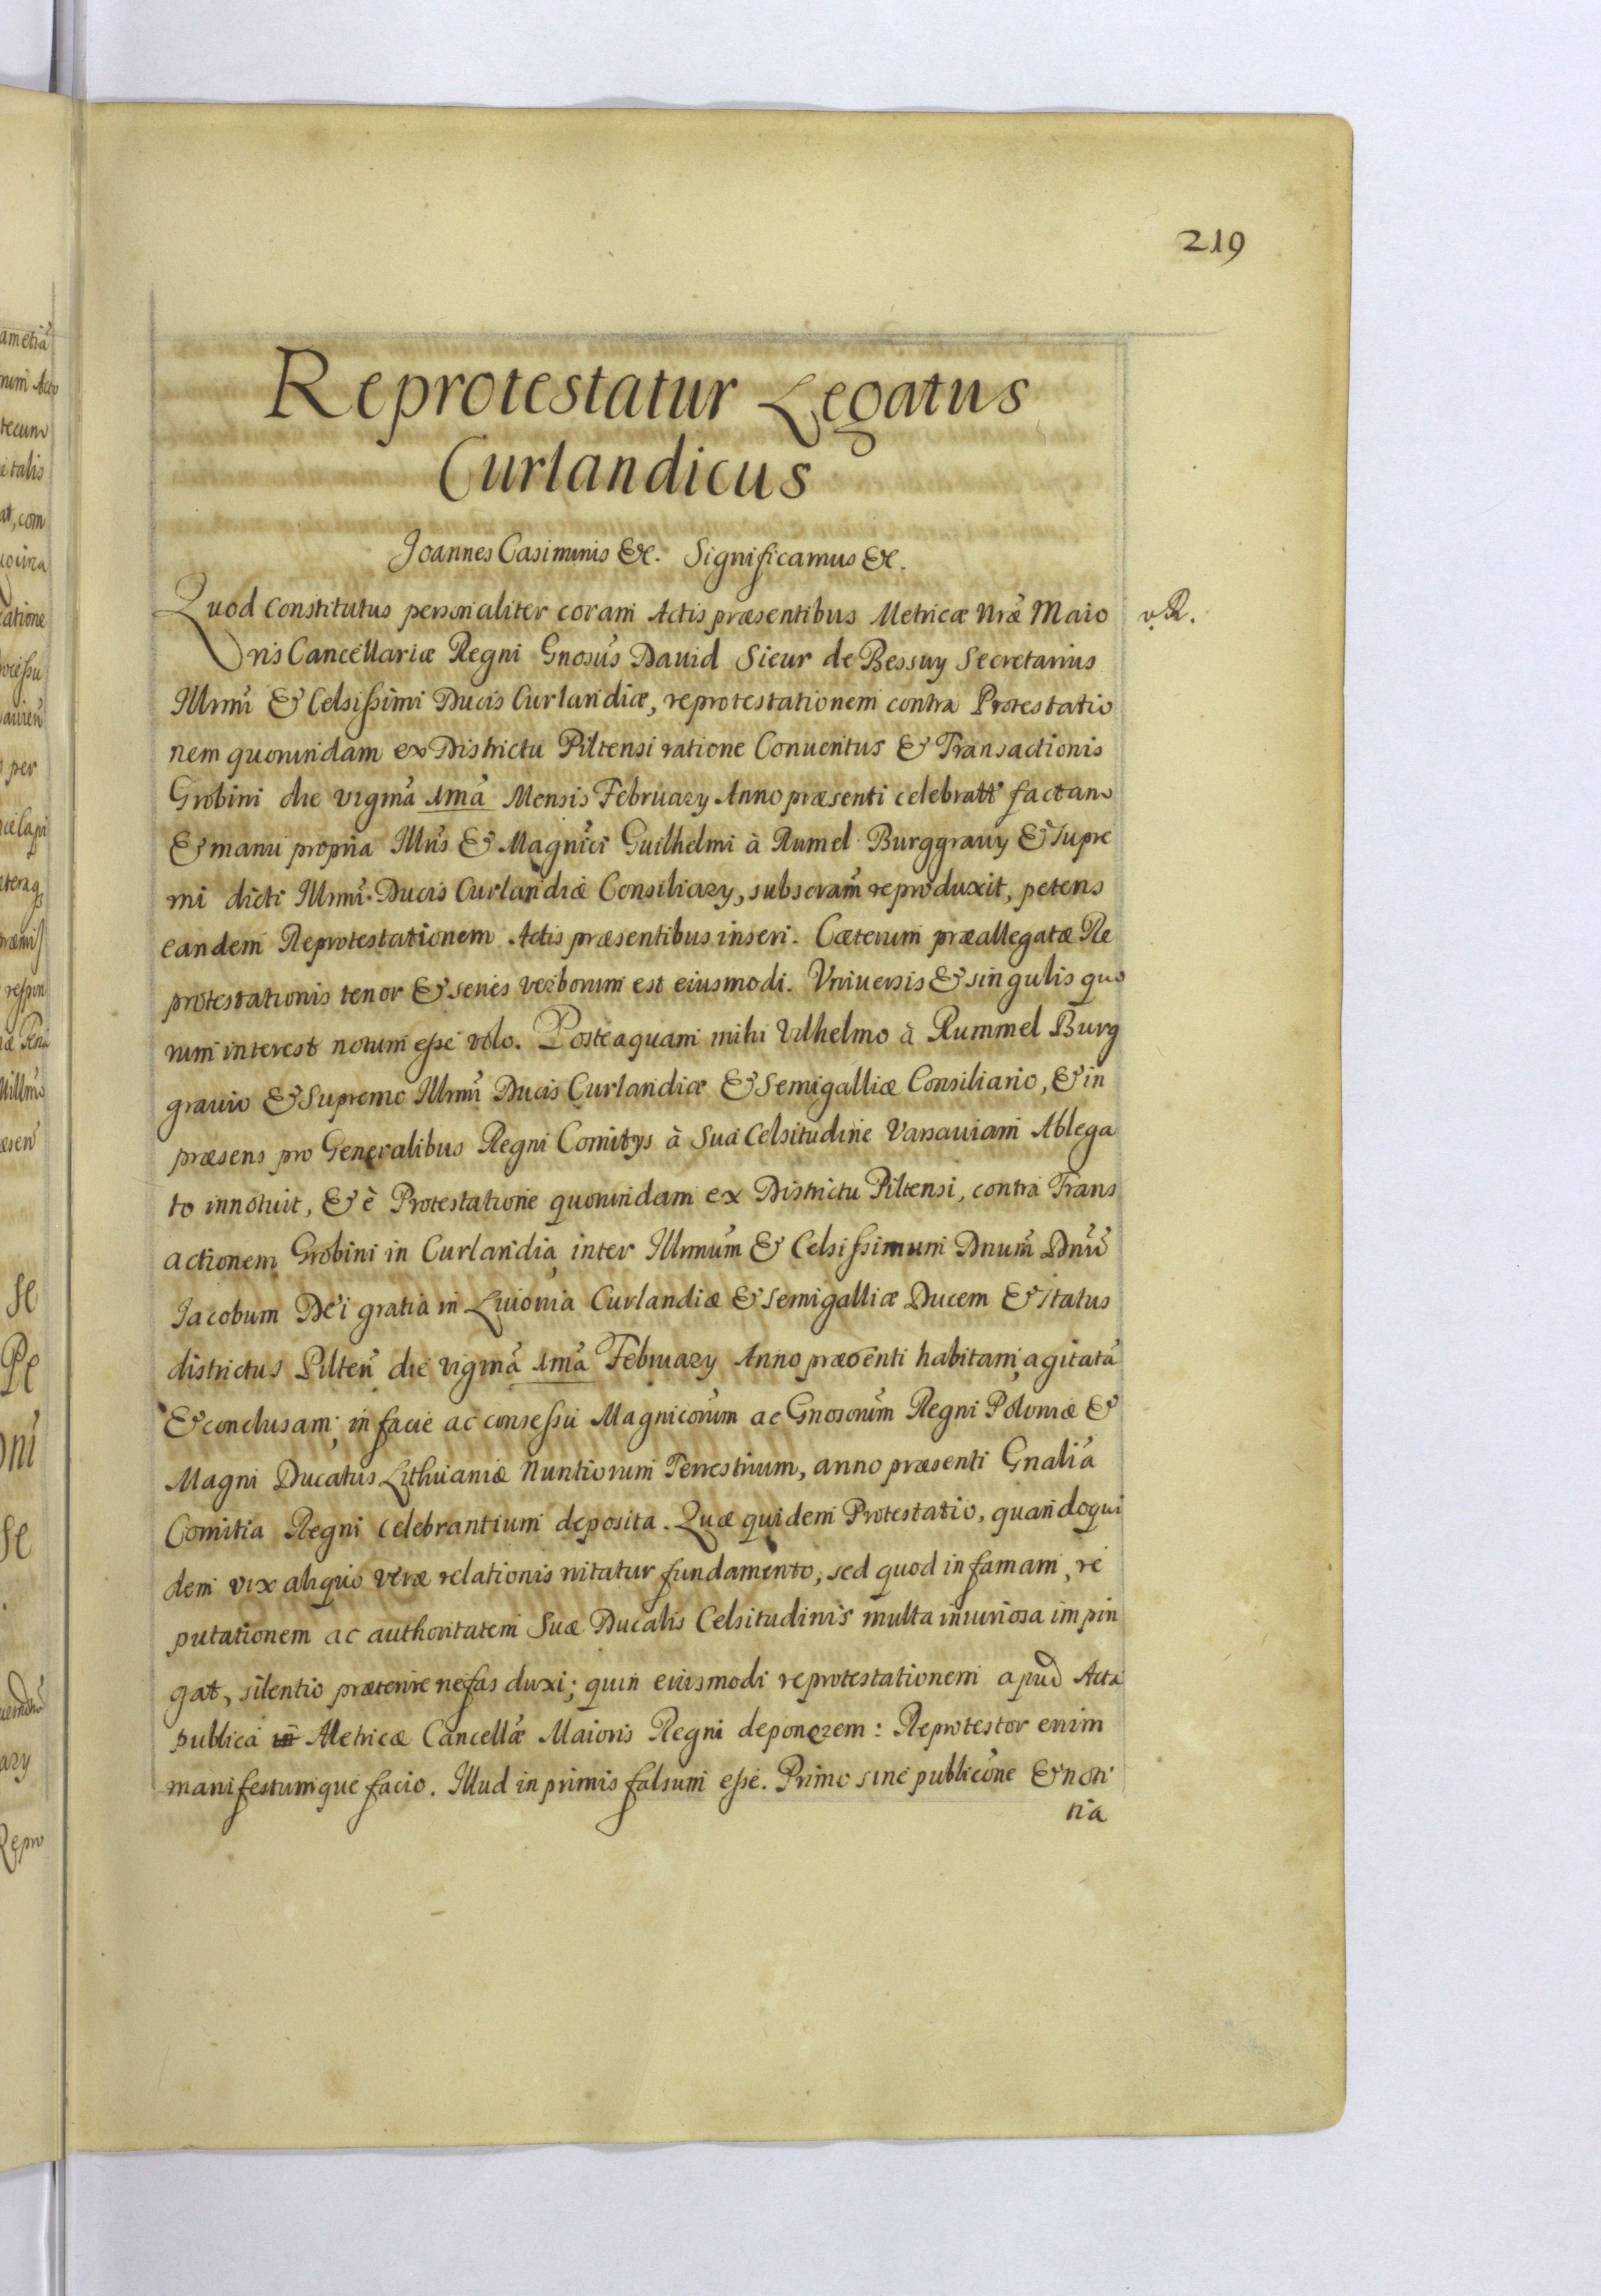 219
Reprotestatur Legatus
Curlandicus
Joannes Casimirus &c. Significamus &c.
Quod constitutus personaliter coram Actis præsentibus Metricæ Nræ Maio
ris Cancellariæ Regni Gnosus Dauid Sieur de Bessuy Secretarius
Illrmi & Celsissimi Ducis Curlandiæ, reprotestationem contra Protestatio
nem quorundam ex Districtu Piltensi ratione Conuentus & Transactionis
Grobini die vigmâ 1mâ Mensis February Anno præsenti celebratæ factam
& manu propria Illris & Magnici Guilhelmi à Rumel Burggrauy & Supre
mi dicti Illrmi Ducis Curlandiæ Consiliary, subscram reproduxit, petens
eandem Reprotestationem Actis præsentibus inseri. Cæterum præallegatæ Re
protestationis tenor & series verborum est eiusmodi. Vniuersis & singulis quo
rum interest notum esse volo. Posteaquam mihi Vilhelmo à Rummel Burg
grauio & Supremo Illrmi Ducis Curlandiæ & Semigalliæ Consiliario, & in
præsens pro Generalibus Regni Comitys à Sua Celsitudine Varsauiam Ablega
to innotuit, & è Protestatione quorundam ex Districtu Piltensi, contra Trans
actionem Grobini in Curlandia, inter Illrmum & Celsissimum Dnum Dnu
Jacobum Dei gratia in Liuonia Curlandiæ & Semigalliæ Ducem & Status
districtus Pilten die vigmâ 1mâ February Anno præsenti habitam, agitatâ
& conclusam, in facie ac consessu Magnicorum ac Gnosorum Regni Poloniæ &
Magni Ducatus Lithuaniæ Nuntiorum Terrestrium, anno præsenti Gnalia
Comitia Regni celebrantium deposita. Quæ quidem Protestatio, quandoqui
dem vix aliquo veræ relationis nitatur fundamento, sed quod in famam, re
putationem ac authoritatem Suæ Ducalis Celsitudinis multa iniuriosa impin
gat, silentio præterire nefas duxi; quin eiusmodi reprotestationem apud Acta
publica in Metricæ Cancellæ Maioris Regni deponerem: Reprotestor enim
manifestumque facio. Illud in primis falsum esse. Primo sine publicône & noti
tia